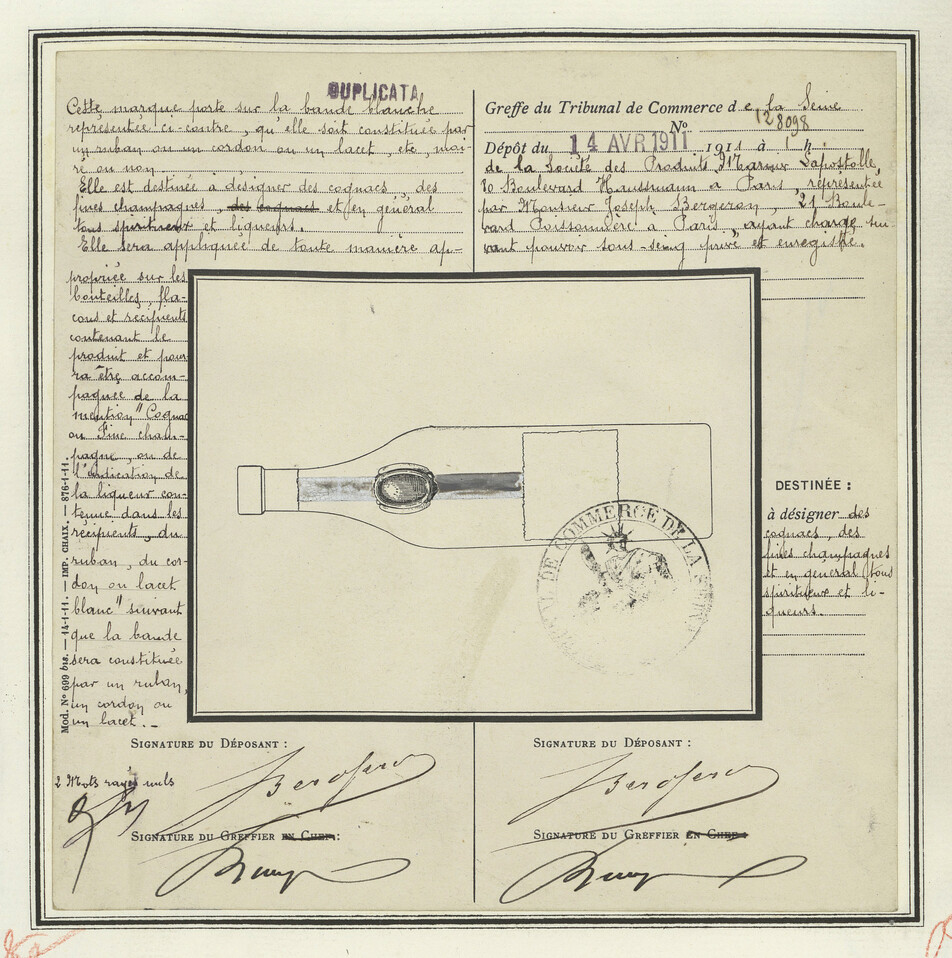 DUPLICATA
Cette marque porte sur la bande blanche
représentée ci-contre, qu'elle soit constituée par
un ruban ou un cordon ou un lacet, etc, moi-
ré ou non.
Elle est destinée à désigner des cognacs, des
fines champagnes, des cognacs et en général
tous spiritueux et liqueurs.
Elle sera appliquée de toute manière ap-
propriée sur les
bouteilles, fla-
cons et récipients
contenant le
produit et pour-
ra être accom-
pagnée de la
mention "Cognac
ou Fine cham-
pagne, ou de
l'indication de
la liqueur con-
tenue dans les
récipients, du
ruban, du cor-
don ou lacet
blanc" suivant
que la bande
sera constituée
par un ruban,
un cordon ou
un lacet.-
Mod. No 699 bis. — 14-1-11. — IMP. CHAIX. — 876-1-11.
Greffe du Tribunal de Commerce de la Seine
No 128098
Dépôt du 14 AVR 1911 1911 à 1 h
de la Société des Produits Marnier Lapostolle,
80 Boulevard Haussmann à Paris, représentée
par Monsieur Joseph Bergeron, 21 Boule-
vard Poissonnière à Paris, ayant charge sui-
vant pouvoir sous-seing privé et enregistré.
DE COMMERCE DE LA
DESTINÉE :
à désigner des
cognacs, des
fines champagnes
et en général tous
spiritueux et li-
queurs.
SIGNATURE DU DÉPOSANT :
2 Mots rayés nuls
SIGNATURE DU GREFFIER EN CHEF :
SIGNATURE DU DÉPOSANT :
SIGNATURE DU GREFFIER EN CHEF :